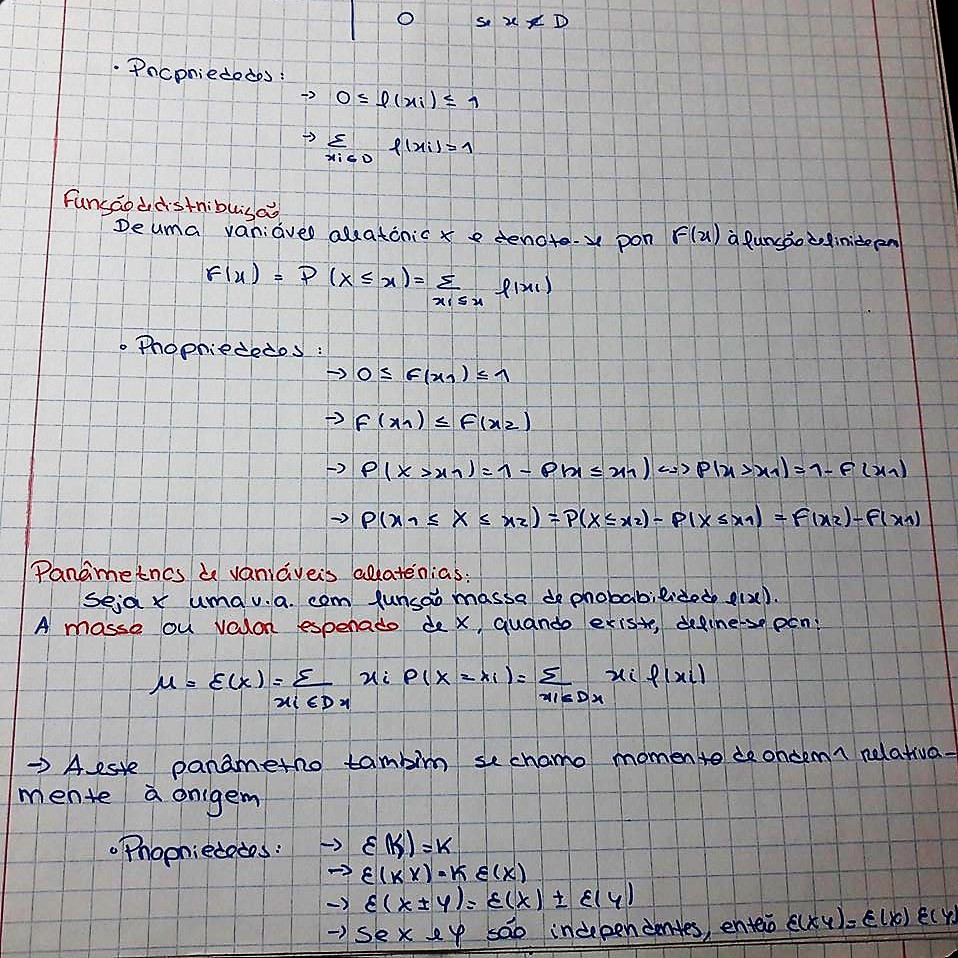 0 se x ∉ D
• Propriedades:
→ 0 ≤ f(xi) ≤ 1
→ Σ f(xi) = 1
xi ∈ D
Função de distribuição
De uma variável aleatória X e denota-se por F(x) à função definida por
F(x) = P(X ≤ x) = Σ f(xi)
xi ≤ x
• Propriedades:
→ 0 ≤ F(x1) ≤ 1
→ F(x1) ≤ F(x2)
→ P(X > x1) = 1 - P(x ≤ x1) <=> P(x > x1) = 1 - F(x1)
→ P(x1 ≤ X ≤ x2) = P(X ≤ x2) - P(X ≤ x1) = F(x2) - F(x1)
Parâmetros de variáveis aleatórias:
Seja X uma v.a. com função massa de probabilidade f(x).
A massa ou valor esperado de X, quando existe, define-se por:
μ = E(X) = Σ xi P(X = xi) = Σ xi f(xi)
xi ∈ Dx xi ∈ Dx
→ A este parâmetro também se chama momento de ordem 1 relativa-
mente à origem
• Propriedades: → E(K) = K
→ E(KX) = K E(X)
→ E(X ± Y) = E(X) ± E(Y)
→ Se X e Y são independentes, então E(XY) = E(X) E(Y)